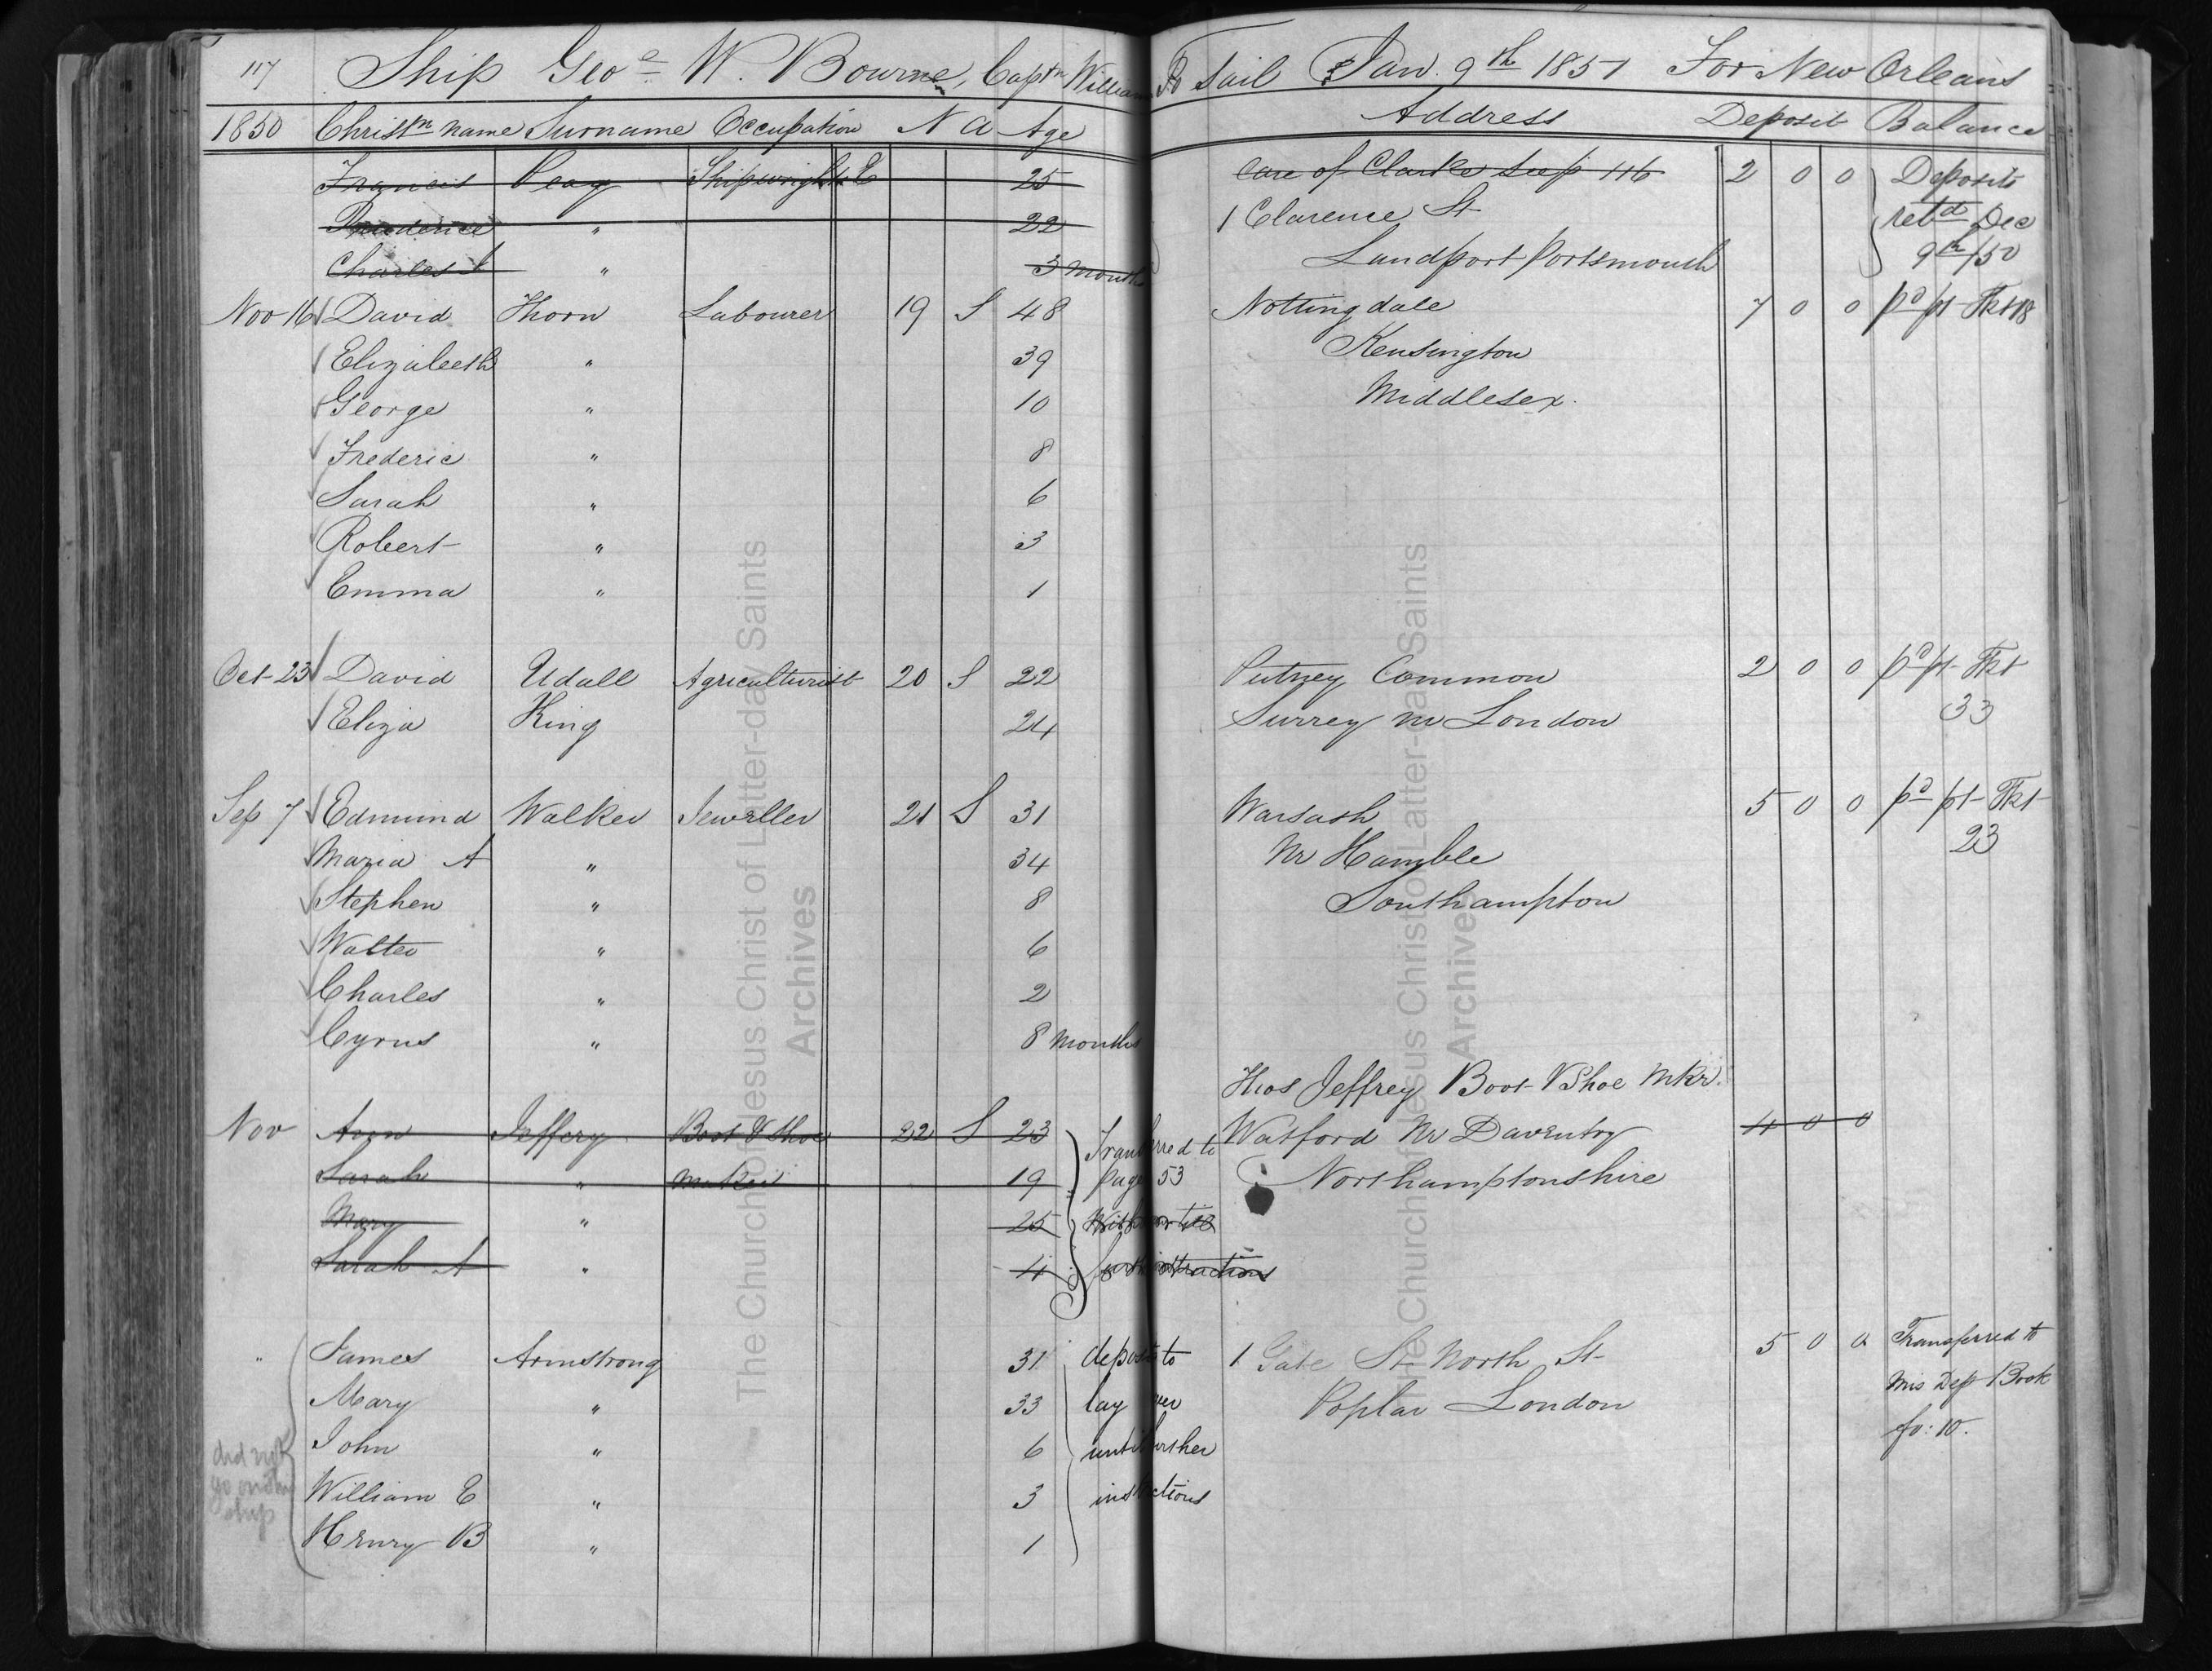 117 Ship Geo^e W. Bourne, Capt^n William To Sail Jan. 9^th 1851 For New Orleans
1850 Christ^n name Surname Occupation N A Age Address Deposit Balance
Francis Peay Shipwright E 25 Care of Clarke See p 116 2 0 0 Deposits
Frederica " 22 1 Clarence St ret^d Dec
Charles A " 3 months Landport Portsmouth 9^th/50
Nov 16 David Thorn Labourer 19 S 48 Notting dale 7 0 0 p^d pt Tkt 18
Elizabeth " 39 Kensington
George " 10 Middlesex.
Frederic " 8
Sarah " 6
Robert " 3
Emma " 1
Oct 23 David Udall Agriculturist 20 S 22 Putney Common 2 0 0 p^d pt Tkt
Eliza King 24 Surrey nr London 33
Sep 7 Edmund Walker Jeweller 21 S 31 Warsash 5 0 0 p^d pt Tkt
Maria A " 34 Nr Hamble 23
Stephen " 8 Southampton
Walter " 6
Charles " 2
Cyrus " 8 months
Thos Jeffrey Boot & Shoe Mkr.
Nov Ann Jeffery Boot & Shoe 22 S 23 Tranferred to Watford Nr Daventry 4 0 0
Sarah " maker 19 page 53 Northamptonshire
Mary " 25
Sarah A " 4 instructions
" James Armstrong 31 deposit to 1 Gate St North St 5 0 0 Transferred to
Mary " 33 lay over Poplar London Mis Dep Book
John " 6 until further fo: 10.
did not
William E " 3 instructions
go on this
ship
Henry B " 1
The Church of Jesus Christ of Latter-day Saints
Archives
The Church of Jesus Christ of Latter-day Saints
Archives